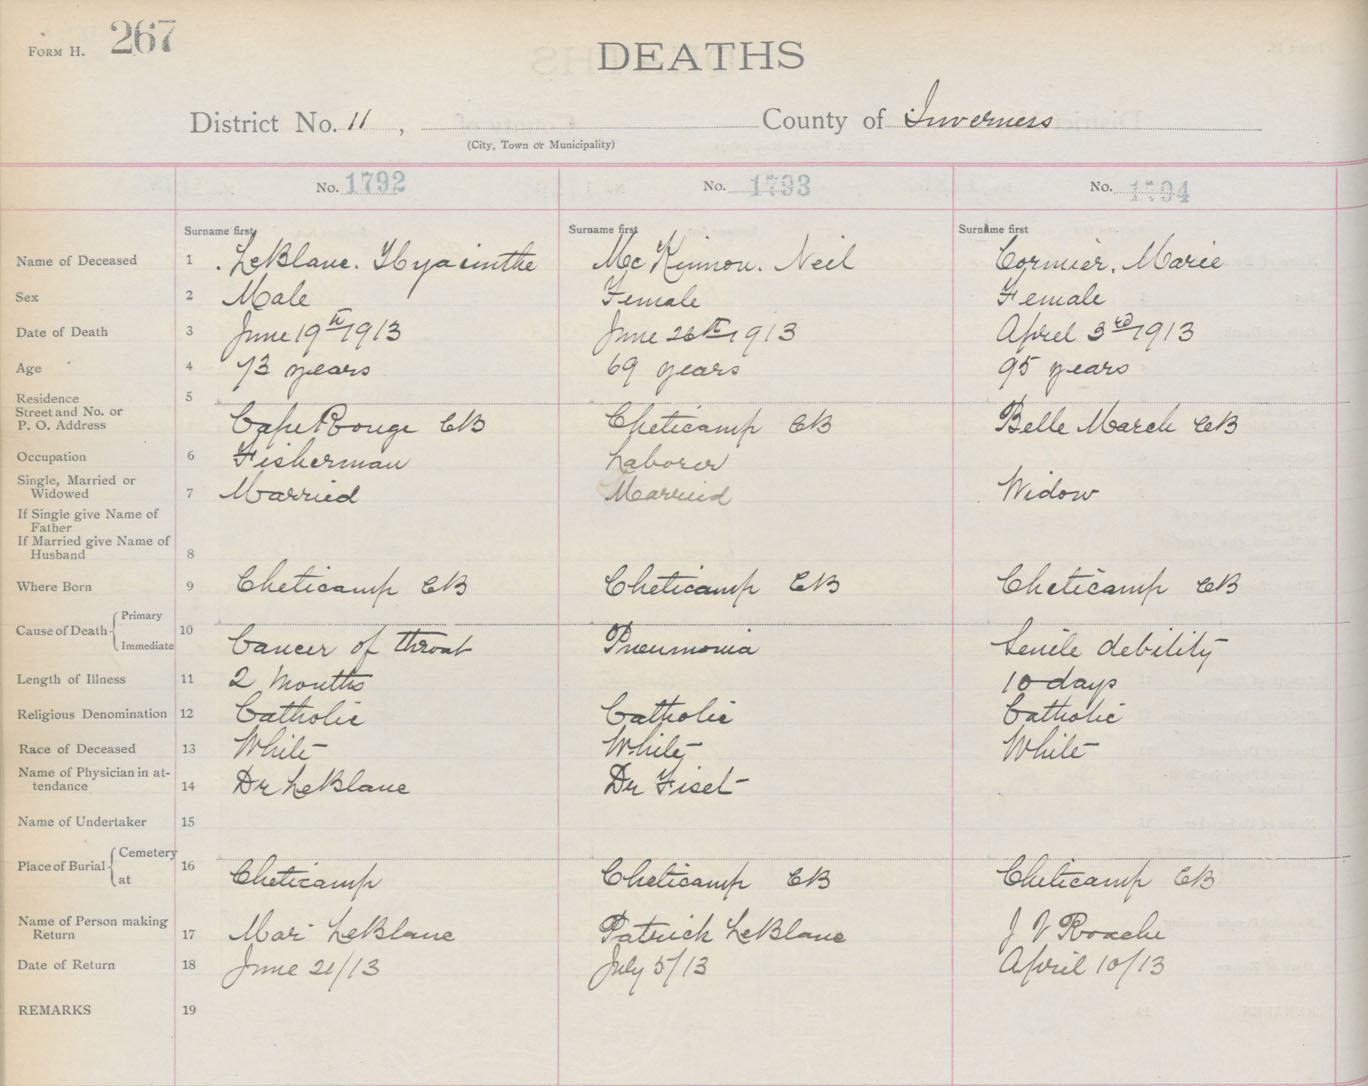 FORM H. 267
DEATHS
District No. 11, County of Inverness
(City, Town or Municipality)
No. 1792 No. 1793 No. 1794
Surname first Surname first Surname first
Name of Deceased 1 LeBlanc. Hyacinthe Mc Kinnon. Neil Cormier. Marie
Sex 2 Male Female Female
Date of Death 3 June 19th 1913 June 26th 1913 April 3rd 1913
Age 4 73 years 69 years 95 years
Residence 5
Street and No. or
P. O. Address Cape Rouge CB Cheticamp CB Belle March CB
Occupation 6 Fisherman Laborer
Single, Married or
Widowed 7 Married Married Widow
If Single give Name of
Father
If Married give Name of
Husband 8
Where Born 9 Cheticamp CB Cheticamp CB Cheticamp CB
Primary
Cause of Death 10
Immediate Cancer of throat Pneumonia Senile debility
Length of Illness 11 2 months 10 days
Religious Denomination 12 Catholic Catholic Catholic
Race of Deceased 13 White White White
Name of Physician in at-
tendance 14 Dr LeBlanc Dr Fiset
Name of Undertaker 15
Cemetery
Place of Burial 16
at Cheticamp Cheticamp CB Cheticamp CB
Name of Person making
Return 17 LeBlanc Patrick LeBlanc J V Roache
Date of Return 18 June 21/13 July 5/13 April 10/13
REMARKS 19